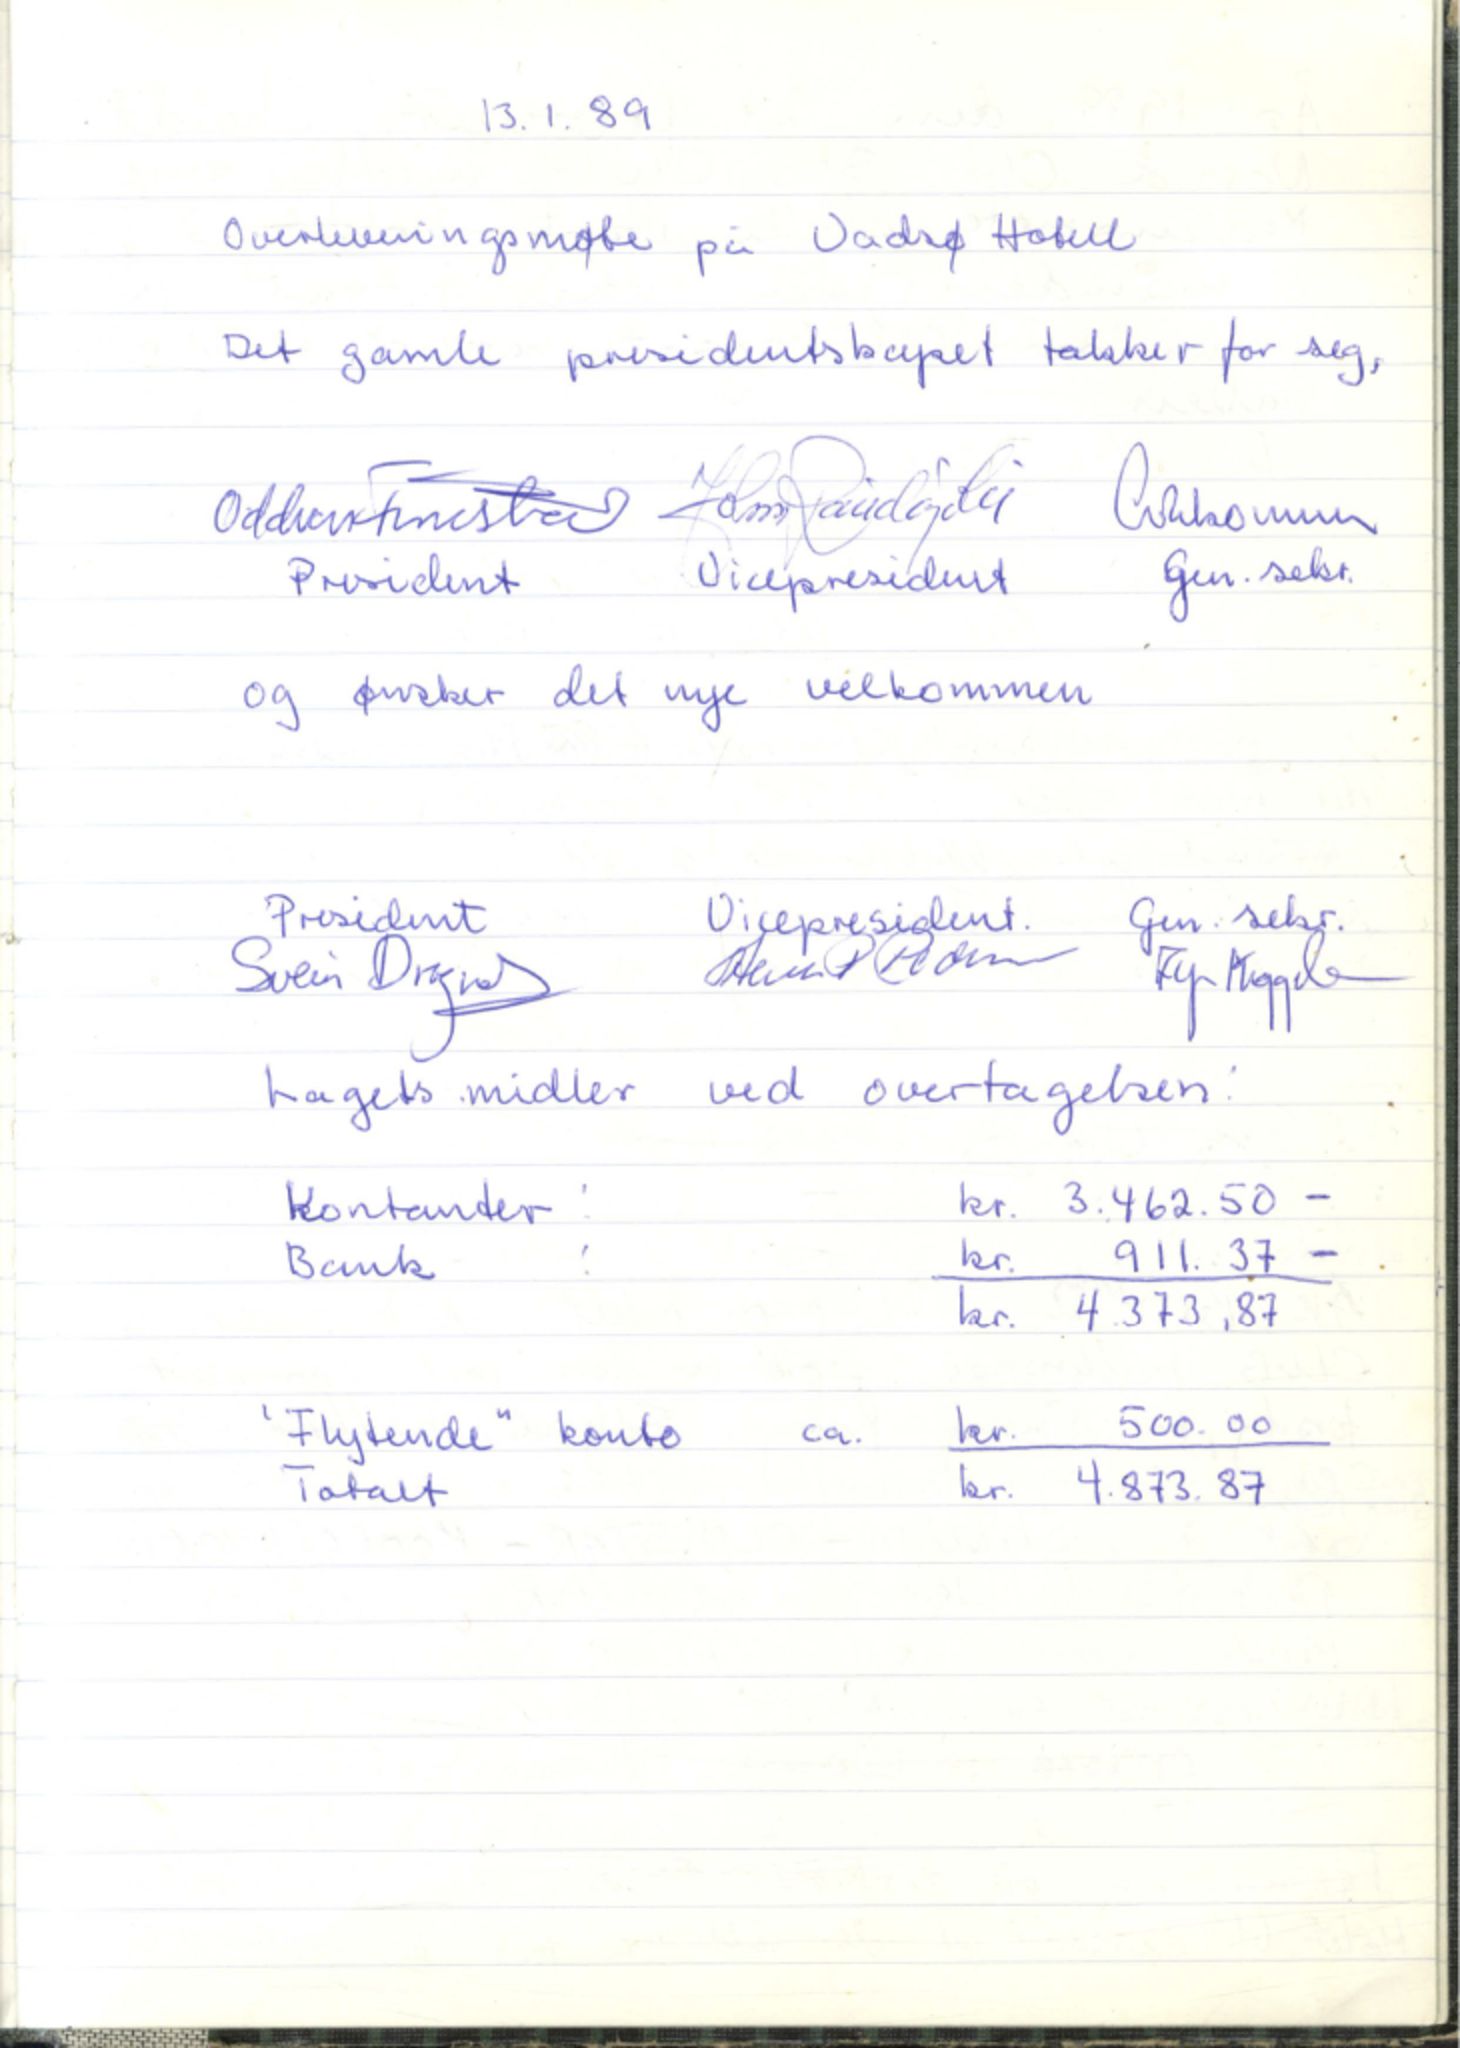 13.1.89
Overleveringsmøte på Vadsø Hotell
Det gamle presidentskapet takker for seg,
President Vicepresident Gen. sekr.
og ønsker det nye velkommen
President Vicepresident. Gen. sekr.
Svein
Lagets midler ved overtagelsen:
Kontanter : kr. 3.462.50 -
Bank : kr. 911.37 -
kr. 4.373,87
"Flytende" konto ca. kr. 500.00
Totalt kr. 4.873.87